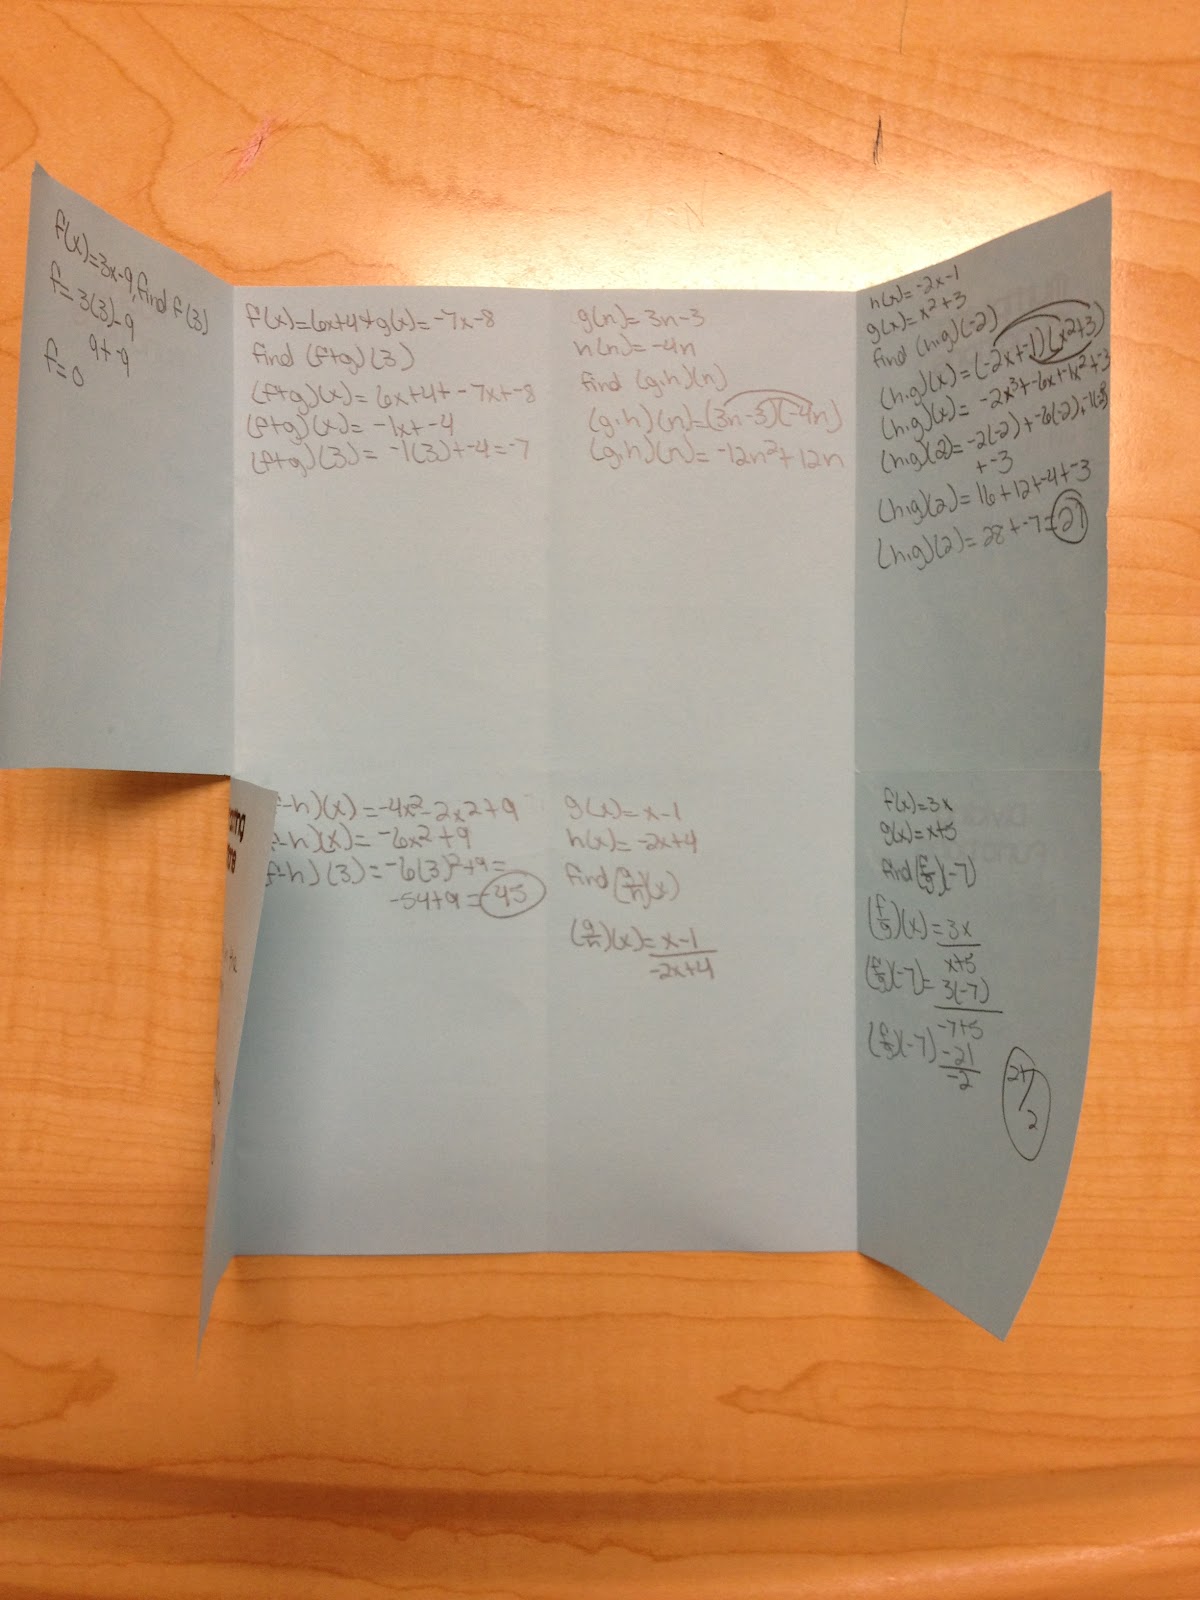 f(x)=3x-9, find f(3)
f= 3(3)-9
9+-9
f=0
f(x)=6x+4 & g(x)= -7x-8
find (f+g)(3)
(f+g)(x)= 6x+4+ -7x+-8
(f+g)(x)= -1x+-4
(f+g)(3)= -1(3)+-4=-7
g(n)=3n-3
h(n)=-4n
find (g·h)(n)
(g·h)(n)=(3n-3)(-4n)
(g·h)(n)= -12n²+12n
h(x)= -2x-1
g(x)= x²+3
find (h·g)(-2)
(h·g)(x)= (-2x+-1)(x²+3)
(h·g)(x)= -2x³+-6x+-1x²+-3
(h·g)(2)= -2(-2)+-6(-2)+-1(
+-3
(h·g)(2)= 16+12+-4+-3
(h·g)(2)= 28+-7=21
f-h)(x)=-4x²-2x²+9
f-h)(x)= -6x²+9
f-h)(3)= -6(3)²+9=
-54+9=-45
g(x)=x-1
h(x)= -2x+4
find (g/h)(x)
(g/h)(x)= x-1
-2x+4
f(x)=3x
g(x)=x+5
find (f/g)(-7)
(f/g)(x)= 3x
x+5
(f/g)(-7)= 3(-7)
-7+5
(f/g)(-7) -21
-2
21/2